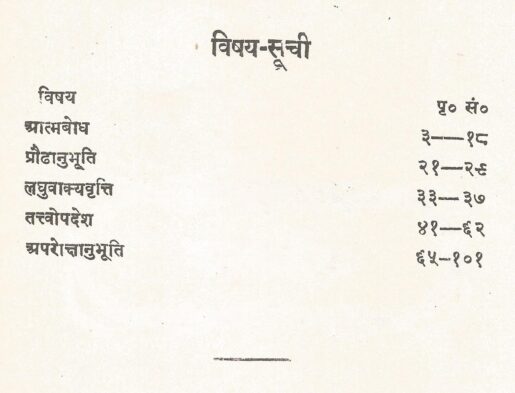 विषय-सूची
विषय पृ० सं०
आत्मबोध ३——१८
प्रौढानुभूति २१—२९
लघुवाक्यवृत्ति ३३—३७
तत्त्वोपदेश ४१—६२
अपरोक्षानुभूति ६५–१०१